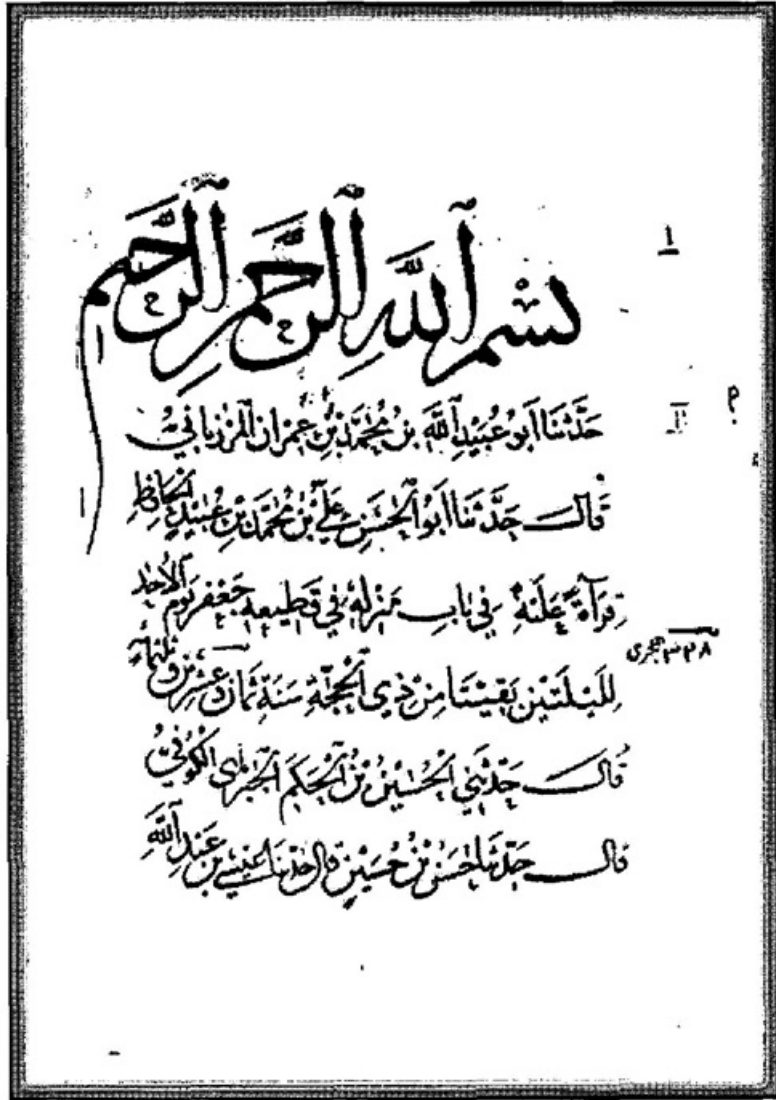 ١
بسم الله الرحمن الرحيم
حدثنا ابو عبيد الله بن محمد بن عمران المرزباني
قال حدثنا ابو الحسن علي بن محمد بن عبيد الحافظ
قرآة عليه في باب منزله في قطيعة جعفر يوم الاحد
لليلتين بقيتا من ذي الحجة سنة ثمان وعشرين وثلثمائة
قال حدثني الحسين بن الحكم الحبري الكوفي
قال حدثنا حسن بن حسين قال حدثنا عيسى بن عبد الله